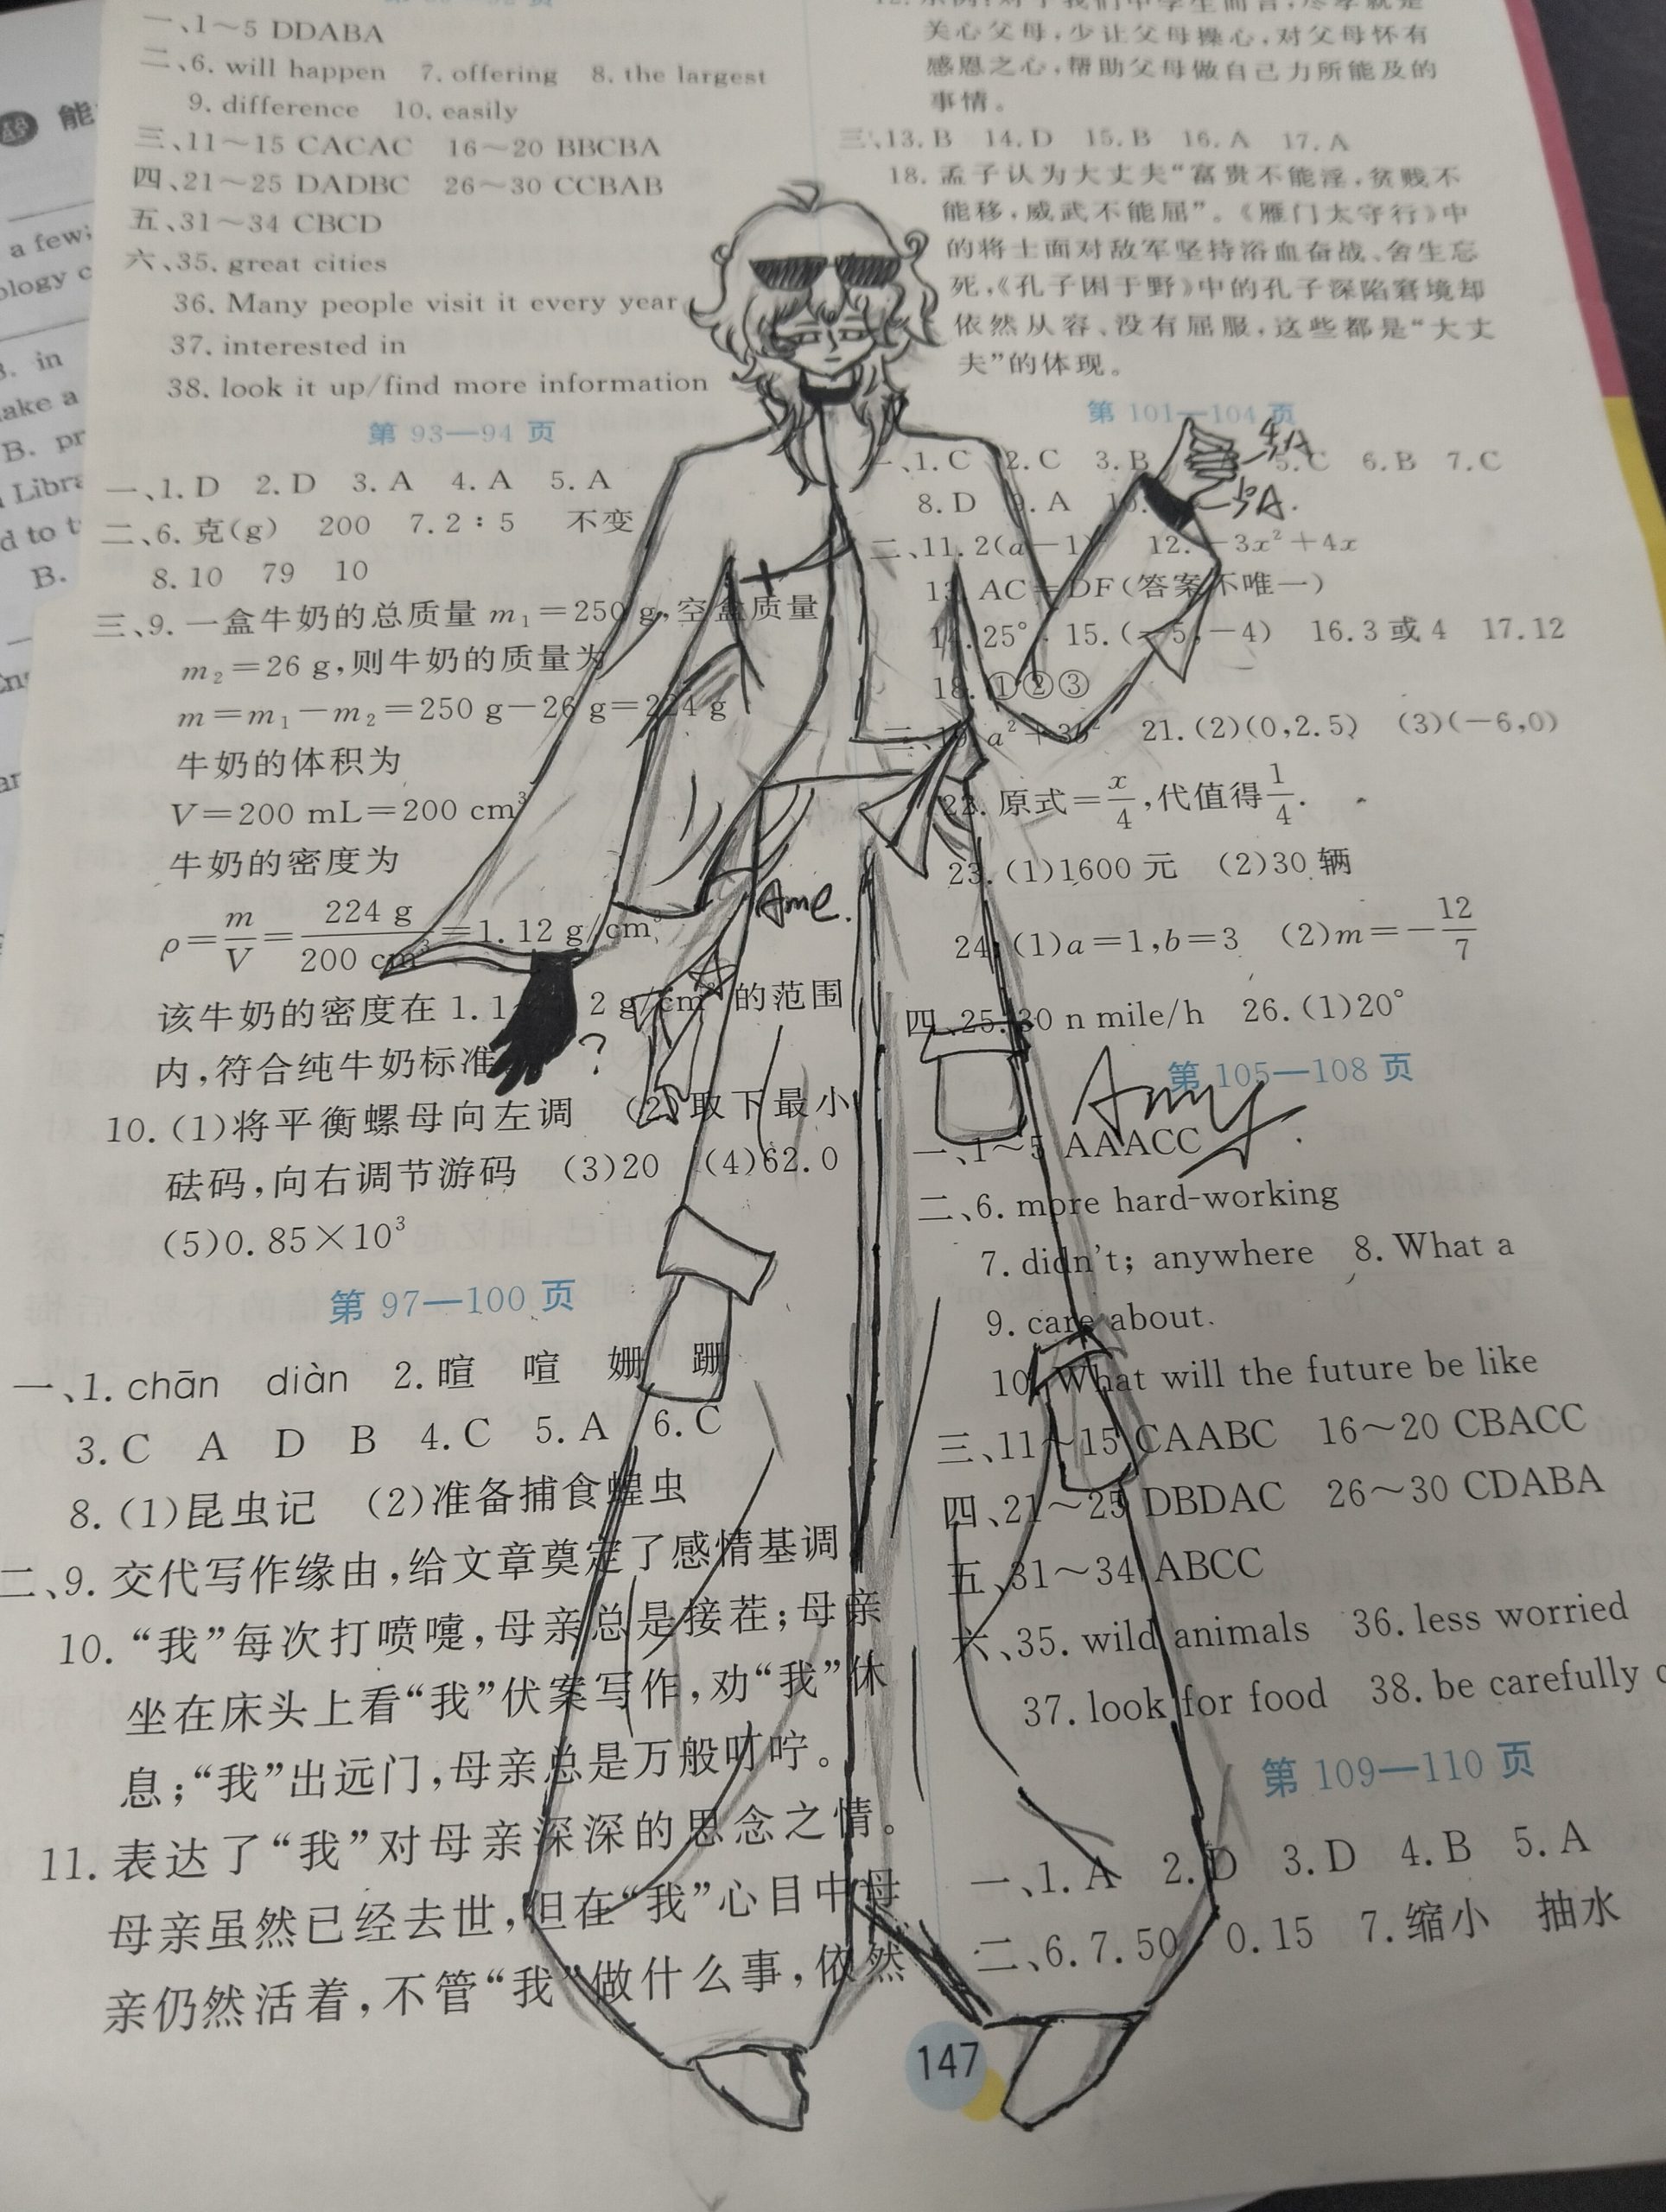 一、1～5 DDABA
二、6. will happen 7. offering 8. the largest
9. difference 10. easily
三、11～15 CACAC 16～20 BBCBA
四、21～25 DADBC 26～30 CCBAB
五、31～34 CBCD
六、35. great cities
36. Many people visit it every year
37. interested in
38. look it up/find more information
第 93—94 页
一、1. D 2. D 3. A 4. A 5. A
二、6. 克(g) 200 7. 2∶5 不变
8. 10 79 10
三、9. 一盒牛奶的总质量 m₁＝250 g，空盒质量
m₂＝26 g，则牛奶的质量为
m＝m₁－m₂＝250 g－26 g＝224 g
牛奶的体积为
V＝200 mL＝200 cm³
牛奶的密度为
ρ＝m/V＝224 g/200 cm³＝1.12 g/cm³
该牛奶的密度在 1.1 2 g/cm³ 的范围
内，符合纯牛奶标准
?
10. (1)将平衡螺母向左调 (2)取下最小
砝码，向右调节游码 (3)20 (4)62.0
(5)0.85×10³
第 97—100 页
一、1. chān diàn 2. 暄 喧 姗 跚
3. C A D B 4. C 5. A 6. C
8. (1)昆虫记 (2)准备捕食蝗虫
二、9. 交代写作缘由，给文章奠定了感情基调
10. “我”每次打喷嚏，母亲总是接茬；母亲
坐在床头上看“我”伏案写作，劝“我”休
息；“我”出远门，母亲总是万般叮咛。
11. 表达了“我”对母亲深深的思念之情。
母亲虽然已经去世，但在“我”心目中母
亲仍然活着，不管“我”做什么事，依然
Ame.
关心父母，少让父母操心，对父母怀有
感恩之心，帮助父母做自己力所能及的
事情。
三、13. B 14. D 15. B 16. A 17. A
18. 孟子认为大丈夫“富贵不能淫，贫贱不
能移，威武不能屈”。《雁门太守行》中
的将士面对敌军坚持浴血奋战、舍生忘
死，《孔子困于野》中的孔子深陷窘境却
依然从容、没有屈服，这些都是“大丈
夫”的体现。
第 101—104 页
一、1. C 2. C 3. B 5. C 6. B 7. C
8. D 9. A 10.
二、11. 2(a－1)² 12. －3x²＋4x
13. AC＝DF(答案不唯一)
14. 25° 15. (－5，－4) 16. 3 或 4 17. 12
18. ①②③
三、19. a²＋3b² 21. (2)(0，2.5) (3)(－6，0)
22. 原式＝x/4，代值得1/4.
23. (1)1600 元 (2)30 辆
24. (1)a＝1，b＝3 (2)m＝－12/7
四、25. 30 n mile/h 26. (1)20°
第 105—108 页
Amy
一、1～5 AAACC
二、6. more hard-working
7. didn't; anywhere 8. What a
9. care about
10. What will the future be like
三、11～15 CAABC 16～20 CBACC
四、21～25 DBDAC 26～30 CDABA
五、31～34 ABCC
六、35. wild animals 36. less worried
37. look for food 38. be carefully
第 109—110 页
一、1. A 2. D 3. D 4. B 5. A
二、6. 7.50 0.15 7. 缩小 抽水
147